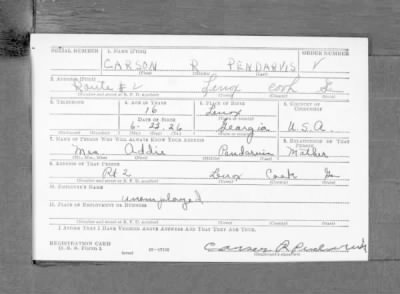 SERIAL NUMBER 1. NAME (Print) ORDER NUMBER
CARSON R PENDARVIS
(First) (Middle) (Last)
2. ADDRESS (Print)
Route # 2 Lenox Cook Ga
(Number and street or R. F. D. number) (Town) (County) (State)
3. TELEPHONE 4. AGE IN YEARS 5. PLACE OF BIRTH 6. COUNTRY OF CITIZENSHIP
16 Lenox
DATE OF BIRTH
6-23-26 Georgia U.S.A.
7. NAME OF PERSON WHO WILL ALWAYS KNOW YOUR ADDRESS 8. RELATIONSHIP OF THAT PERSON
Mrs Addie Pendarvis Mother
(Mr., Mrs., Miss) (First) (Middle) (Last)
9. ADDRESS OF THAT PERSON
Rt 2 Lenox Cook Ga
(Number and street or R. F. D. number) (Town) (County) (State)
10. EMPLOYER'S NAME
unemployed
11. PLACE OF EMPLOYMENT OR BUSINESS
(Number and street or R. F. D. number) (Town) (County) (State)
I AFFIRM THAT I HAVE VERIFIED ABOVE ANSWERS AND THAT THEY ARE TRUE.
REGISTRATION CARD
D. S. S. Form 1
(over)
Carson R Pendarvis
(Registrant's signature)